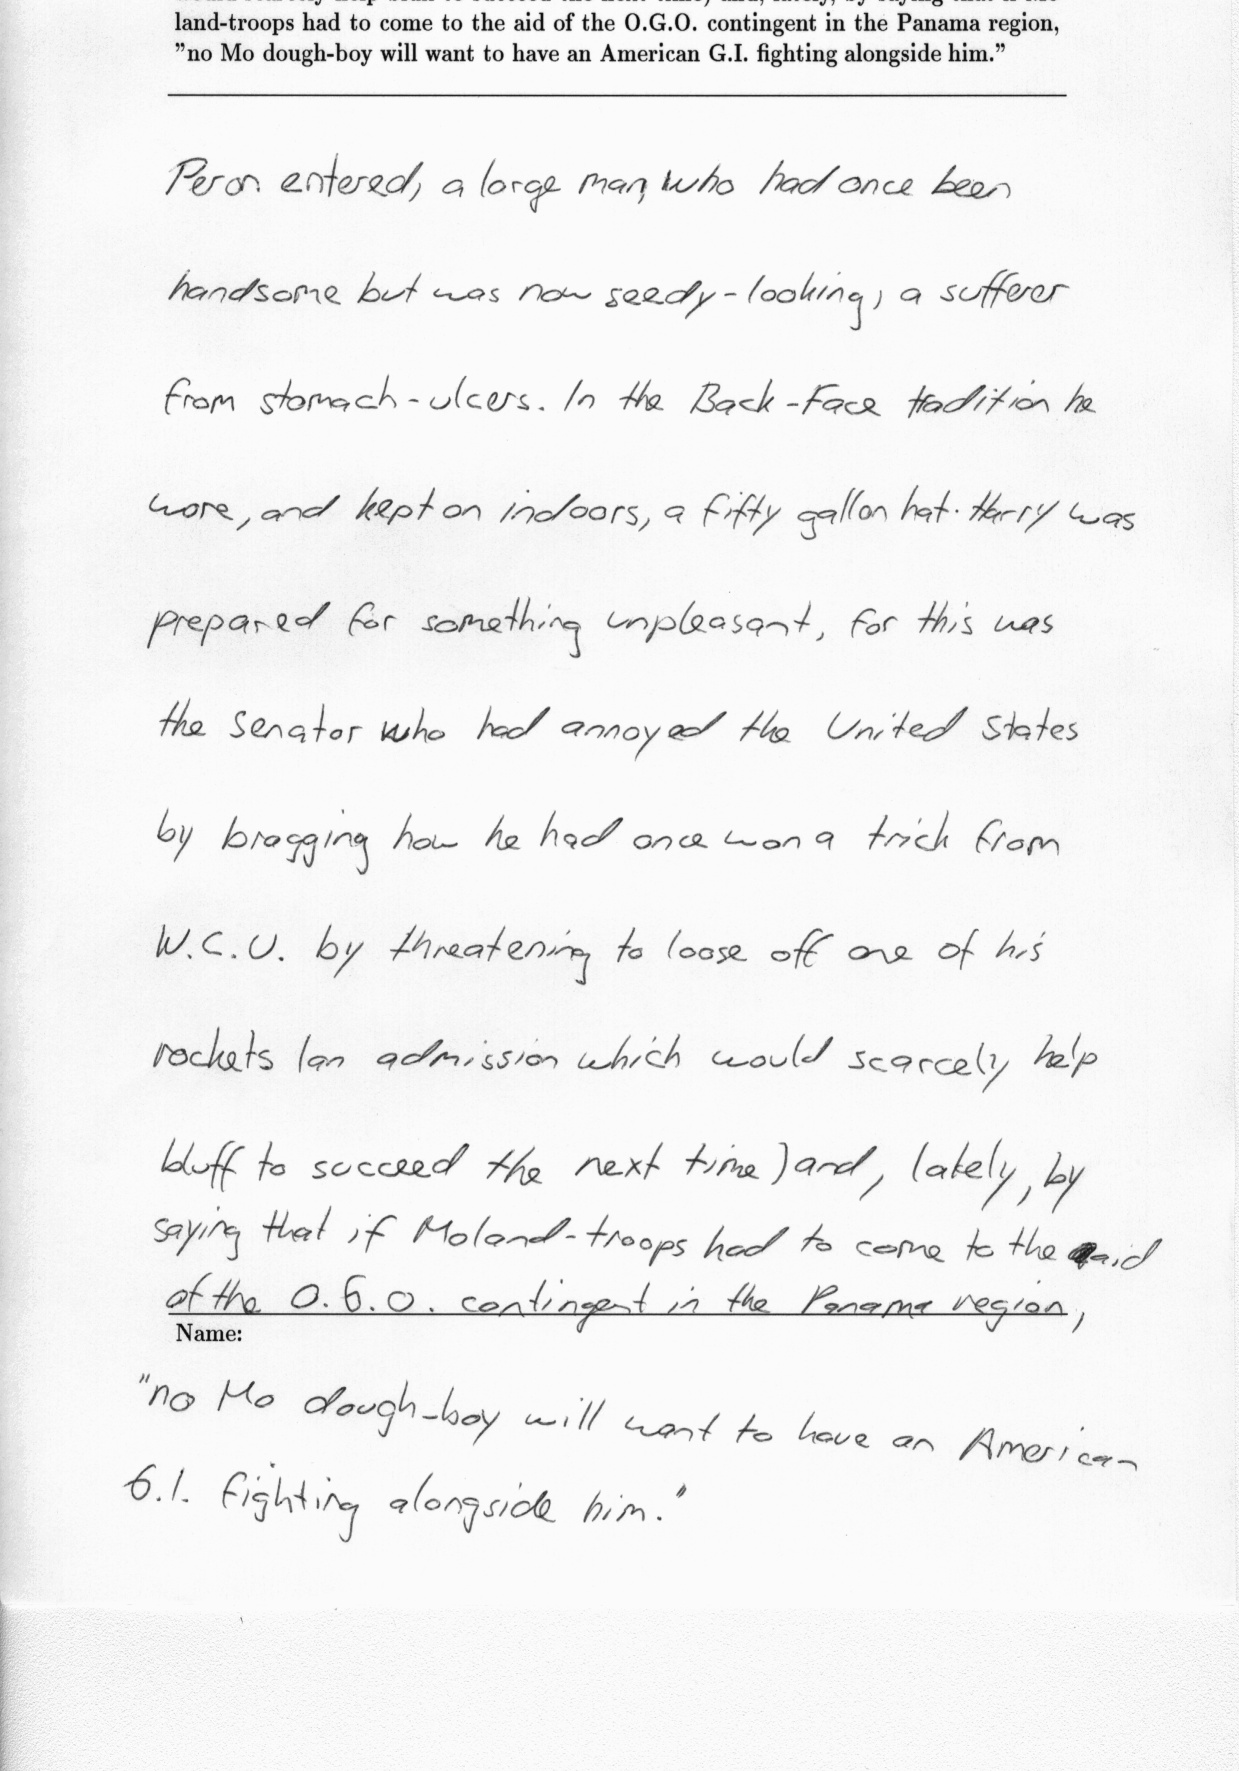 land-troops had to come to the aid of the O.G.O. contingent in the Panama region,
"no Mo dough-boy will want to have an American G.I. fighting alongside him."
Peron entered, a large man, who had once been
handsome but was now seedy-looking, a sufferer
from stomach-ulcers. In the Back-Face tradition he
wore, and kept on indoors, a fifty gallon hat. Harry was
prepared for something unpleasant, for this was
the senator who had annoyed the United States
by bragging how he had once won a trick from
W.C.U. by threatening to loose off one of his
rockets (an admission which would scarcely help
bluff to succeed the next time) and, lately, by
saying that if Moland-troops had to come to the aid
of the O.G.O. contingent in the Panama region,
Name:
"no Mo dough-boy will want to have an American
G.I. fighting alongside him."